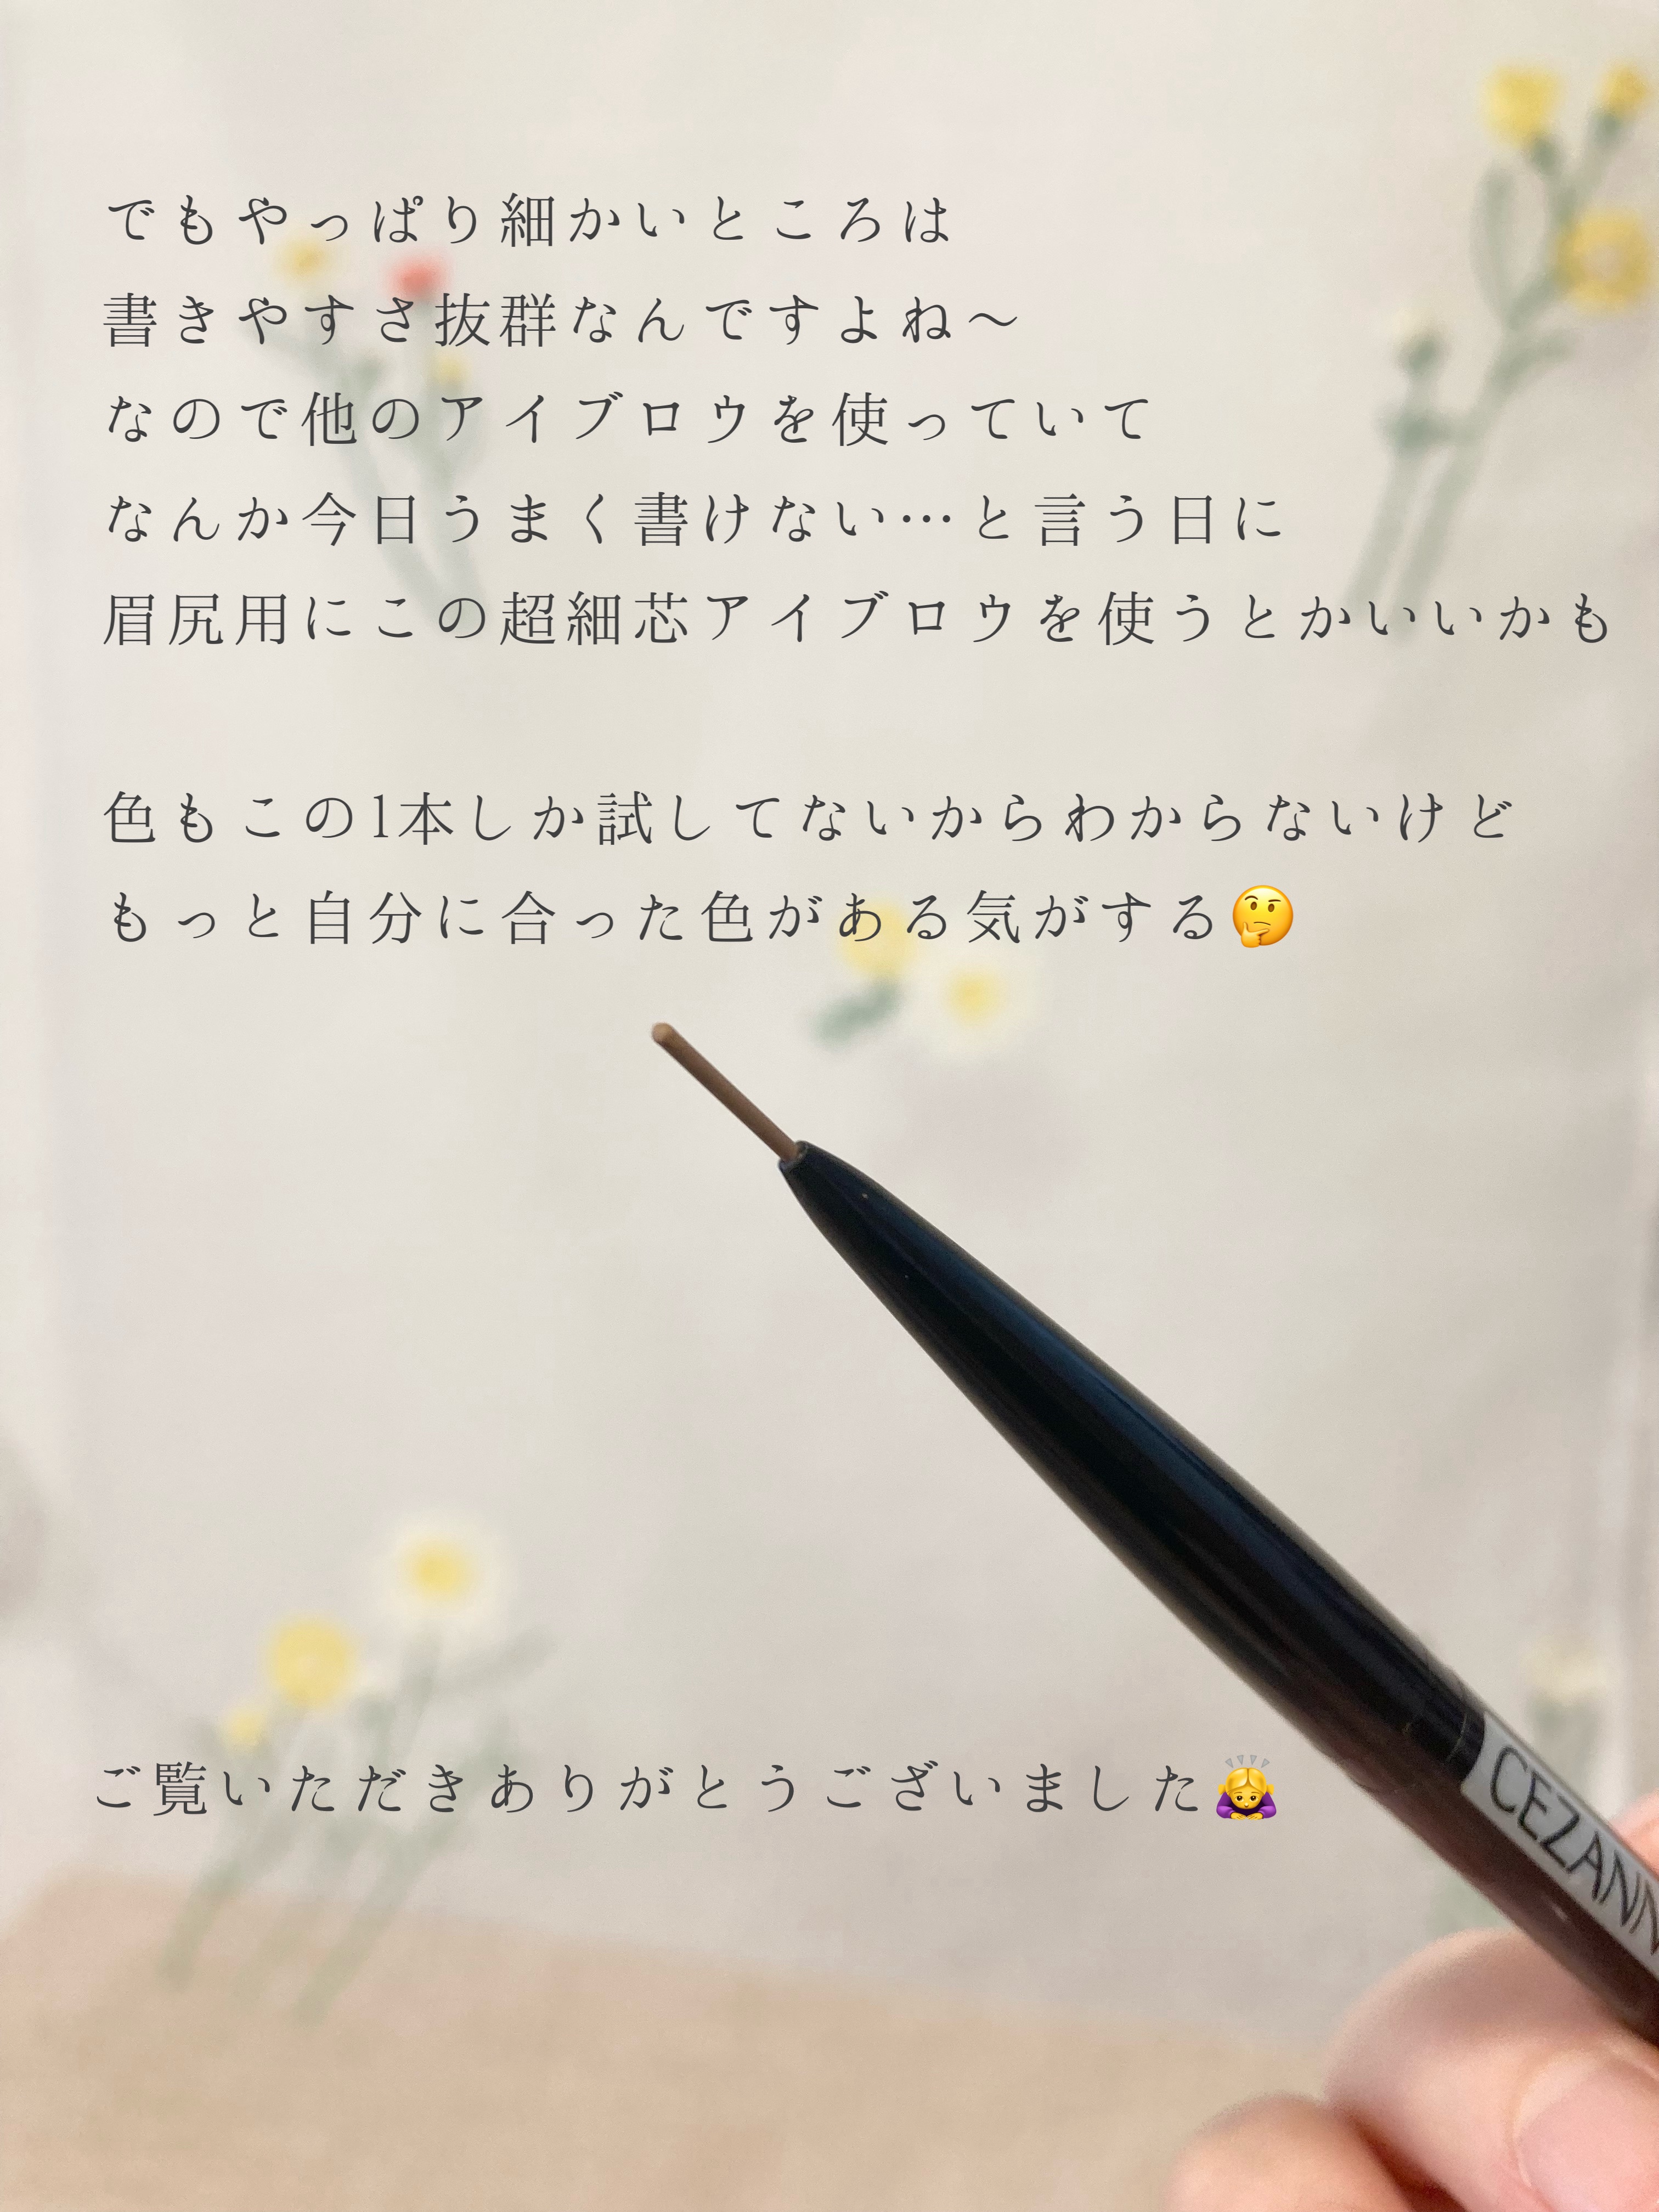 でもやっぱり細かいところは
書きやすさ抜群なんですよね〜
なので他のアイブロウを使っていて
なんか今日うまく書けない…と言う日に
眉尻用にこの超細芯アイブロウを使うとかいいかも
色もこの1本しか試してないからわからないけど
もっと自分に合った色がある気がする🤔
ご覧いただきありがとうございました🙇‍♀️
CEZANN